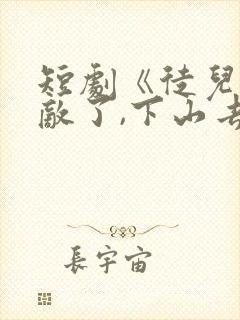 短劇《徒兒
敵了,下山去
長宇宙